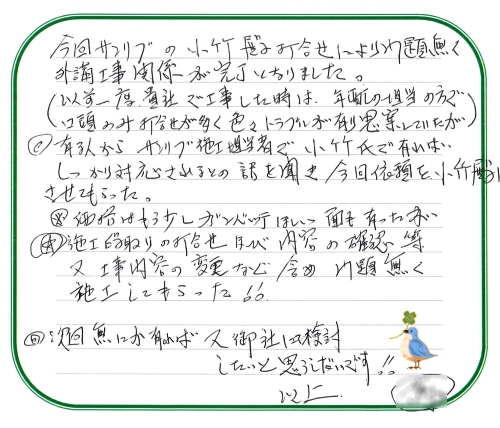 今回サンリブの小竹殿と打合せにより問題無く
外講工事関係が完了となりました。
(以前一度貴社で工事した時は、年配の担当の方で
口頭のみ打合せが多く色々トラブルが有り思案していたが)
有る人からサンリブ施工担当者で小竹氏で有れば
しっかり対応されるとの話を聞き今回依頼を小竹殿に
させてもらった。
※価格はもう少しガンバッテほしい面も有ったが
施工段取りの打合せ及び内容の確認等
又工事内容の変更など含め問題無く
施工してもらった!!
次回無にか有れば又御社に検討
したいと思うしだいです!!
以上